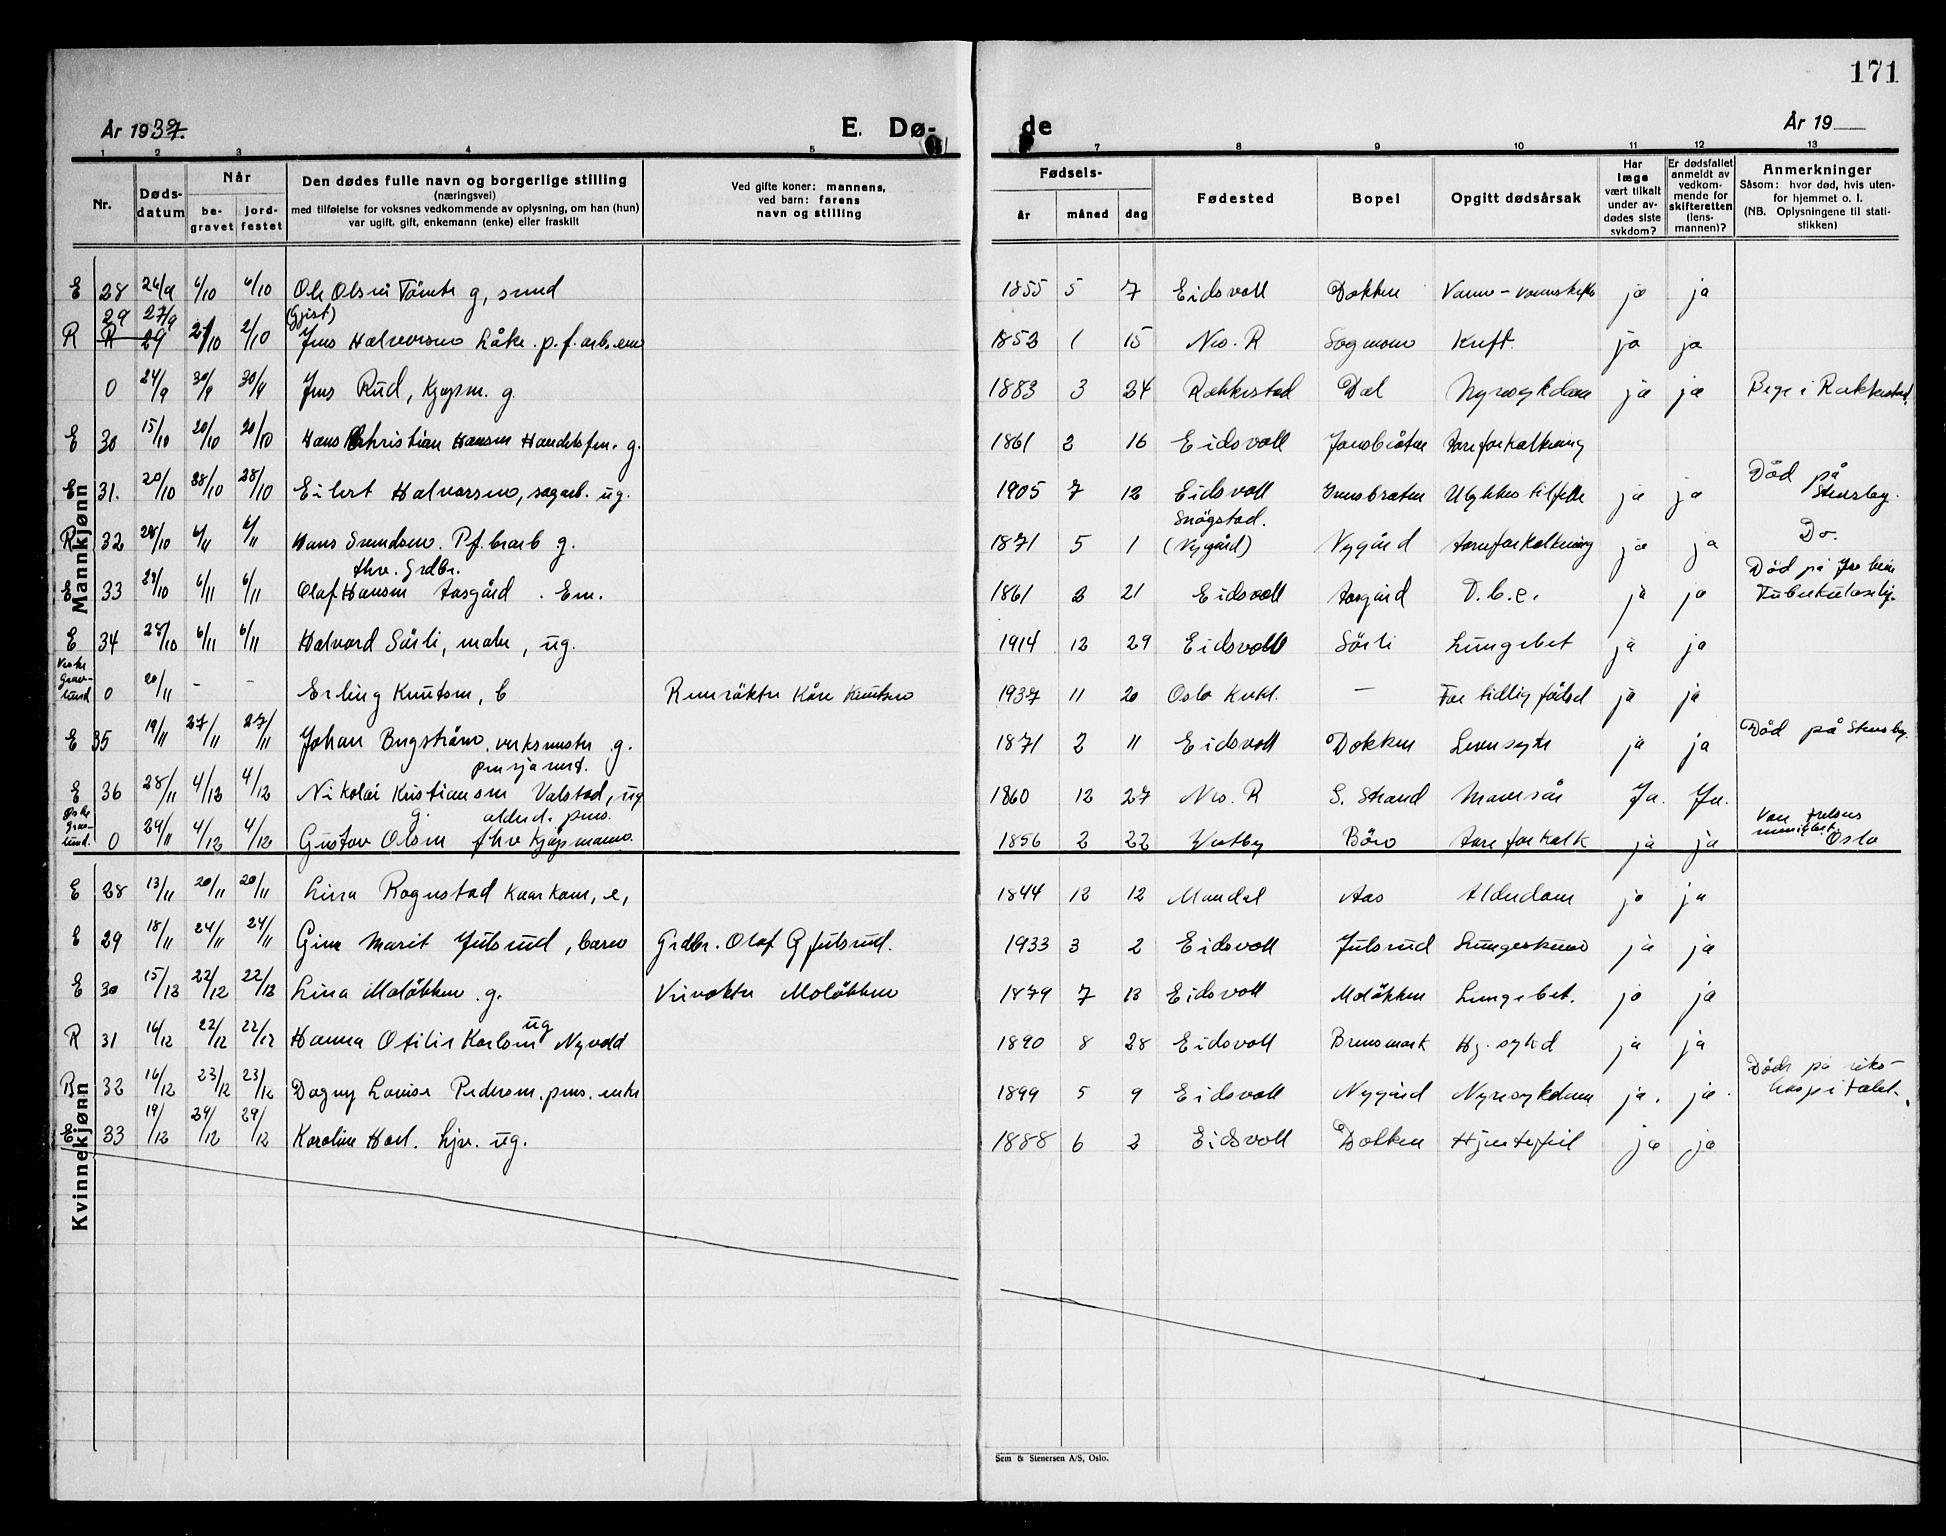 171
År 1937.
E. Dø-
de
År 19
1 2 3 4 5
7 8 9 10 11 12 13
Nr.
Døds-
datum
Når
be-
gravet
jord-
festet
Den dødes fulle navn og borgerlige stilling
(næringsvei)
med tilføielse for voksnes vedkommende av oplysning, om han (hun)
var ugift, gift, enkemann (enke) eller fraskilt
Ved gifte koner: mannens,
ved barn: farens
navn og stilling
Fødsels-
år måned dag
Fødested
Bopel
Opgitt dødsårsak
Har
læge
vært tilkalt
under av-
dødes siste
sykdom?
Er dødsfallet
anmeldt av
vedkom-
mende for
skifteretten
(lens-
mannen)?
Anmerkninger
Såsom: hvor død, hvis uten-
for hjemmet o. l.
(NB. Oplysningene til stati-
stikken)
Mannkjønn
E 28 26/9 6/10 6/10 Ole Olsen Tömte g, smed 1855 5 7 Eidsvoll Dokken ja ja
29 27/9 (Gjest)
R 29 2/10 2/10 Jens Halvorsen Låke. p.f. arb. em 1853 1 15 Nes. R Sagmoen Kreft. ja ja
0 24/9 30/9 30/9 Jens Rud, Kjøpm. g. 1883 3 24 Rakkestad Dal Nyresykdom ja ja Begr i Rakkestad.
E 30 15/10 20/10 20/10 Hans Christian Hansen Handelsfm. g. 1861 2 16 Eidsvoll Jonsbråten Aareforkalkning
E 31. 20/10 28/10 28/10 Eilert Halvorsen, sagarb. ug. 1905 7 12 Eidsvoll Jonsbråten Ulykkestilfelle ja ja Död på Stensby.
Snögstad.
R 32 28/10 6/11 6/11 Hans Svendsen. P.f. brarb g. 1871 5 1 (Nygård) Nygård Aareforkalkning ja ja Do.
fhv. Grdbr.
E 33 29/10 6/11 6/11 Olaf Hansen Aasgård. Em. 1861 2 21 Eidsvoll Aasgård T.b.c. ja ja Död på
Tuberkulosehj.
E 34 28/10 6/11 6/11 Halvard Sörli, maler, ug. 1914 12 29 Eidsvoll Sörli Lungebet ja ja
Vestre
Grav-
lund 0 20/11 - - Erling Knutsen, b Renrökter Kåre Knutsen 1937 11 20 Oslo Kvkl. — For tidlig födsel ja ja
E 35 19/11 27/11 27/11 Johan Bergström, verksmester g. 1871 2 11 Eidsvoll Dokken Leversyke ja ja Död på Stensby.
pensjonert.
E 36 28/11 4/12 4/12 Nikolai Kristiansen Valstad, ug 1860 12 27 Nes. R S. Strand Mavesår Ja. Ja.
g. alderd. pens.
Östre
Grav-
lund. 0 29/11 4/12 4/12 Gustav Olsen fhv kjøpmann. 1856 2 22 Vestby Böro Aareforkalk ja ja Oslo
Kvinnekjønn
E 28 13/11 20/11 20/11 Lina Rognstad e, 1844 12 12 Mandal Aas Alderdom ja ja
E 29 18/11 24/11 24/11 Gine Marit Julsrud, barn Grdbr. Olaf G Julsrud. 1933 3 2 Eidsvoll Julsrud ja ja
E 30 15/12 22/12 22/12 Lina Molökken. g. Veivokter Molökken 1879 7 13 Eidsvoll Molökken Lungebet. ja ja
ug
R 31 16/12 22/12 22/12 Hanna Otilie Karlsen Nyvold 1890 8 28 Eidsvoll Brensmork Hj. sykd ja ja
R 32 16/12 23/12 23/12 Dagny Louise Pedersen. pens. enke 1899 5 9 Eidsvoll Nygård Nyresykdom ja. ja. Död på riks-
hospitalet.
E 33 19/12 29/12 29/12 Karoline Hoel. hjv. ug. 1888 6 2 Eidsvoll Dokken Hjertefeil ja ja
Sem & Stenersen A/S, Oslo.